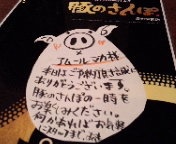 豚のさんぽ
エムールマカ様
本日はご予約頂き誠に
ありがとうございます。
豚のさんぽの一時を
お楽しみください。
何かあればお気軽